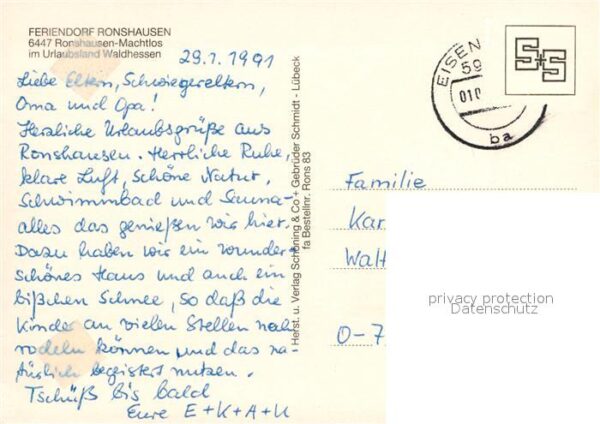 FERIENDORF RONSHAUSEN
6447 Ronshausen-Machtlos
im Urlaubsland Waldhessen
29.1.1991
Liebe Eltern, Schwiegereltern,
Oma und Opa!
Herzliche Urlaubsgrüße aus
Ronshausen. Herrliche Ruhe,
klare Luft, schöne Natur,
Schwimmbad und Sauna-
alles das genießen wir hier.
Dazu haben wir ein wunder-
schönes Haus und auch ein
bißchen Schnee, so daß die
Kinder an vielen Stellen
rodeln können und das na-
türlich begeistert nutzen.
Tschüß bis bald
Eure E+K+A+U
Herst. u. Verlag Schöning & Co + Gebrüder Schmidt - Lübeck
fa Bestellnr. Rons 83
EISEN
59
010
ba
S+S
Familie
Kar
Walt
O-7
privacy protection
Datenschutz